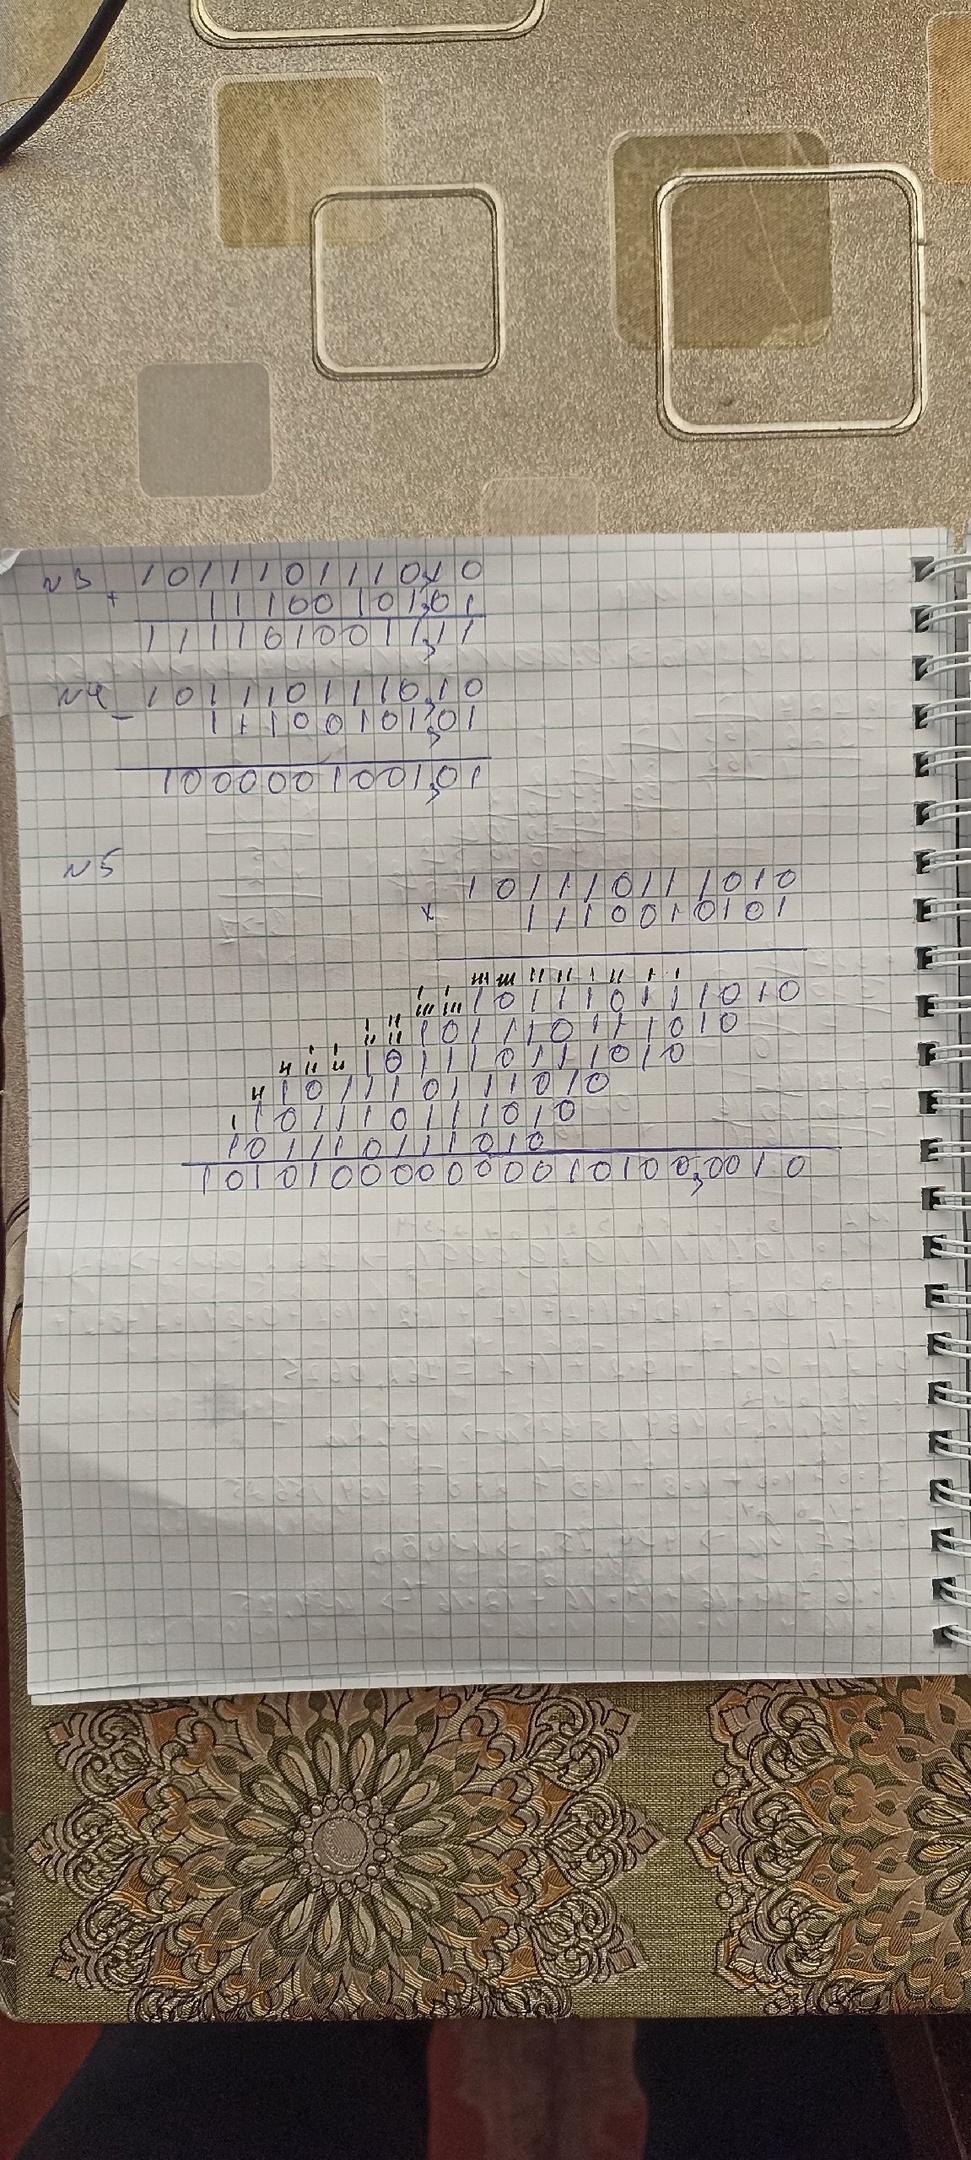 N3 1011101110,10
+ 11100101,01
1111010011,11
N4 1011101110,10
− 11100101,01
1000001001,01
N5
101110111010
× 1110010101
101110111010
101110111010
101110111010
101110111010
101110111010
101110111010
101010000000010100,0010